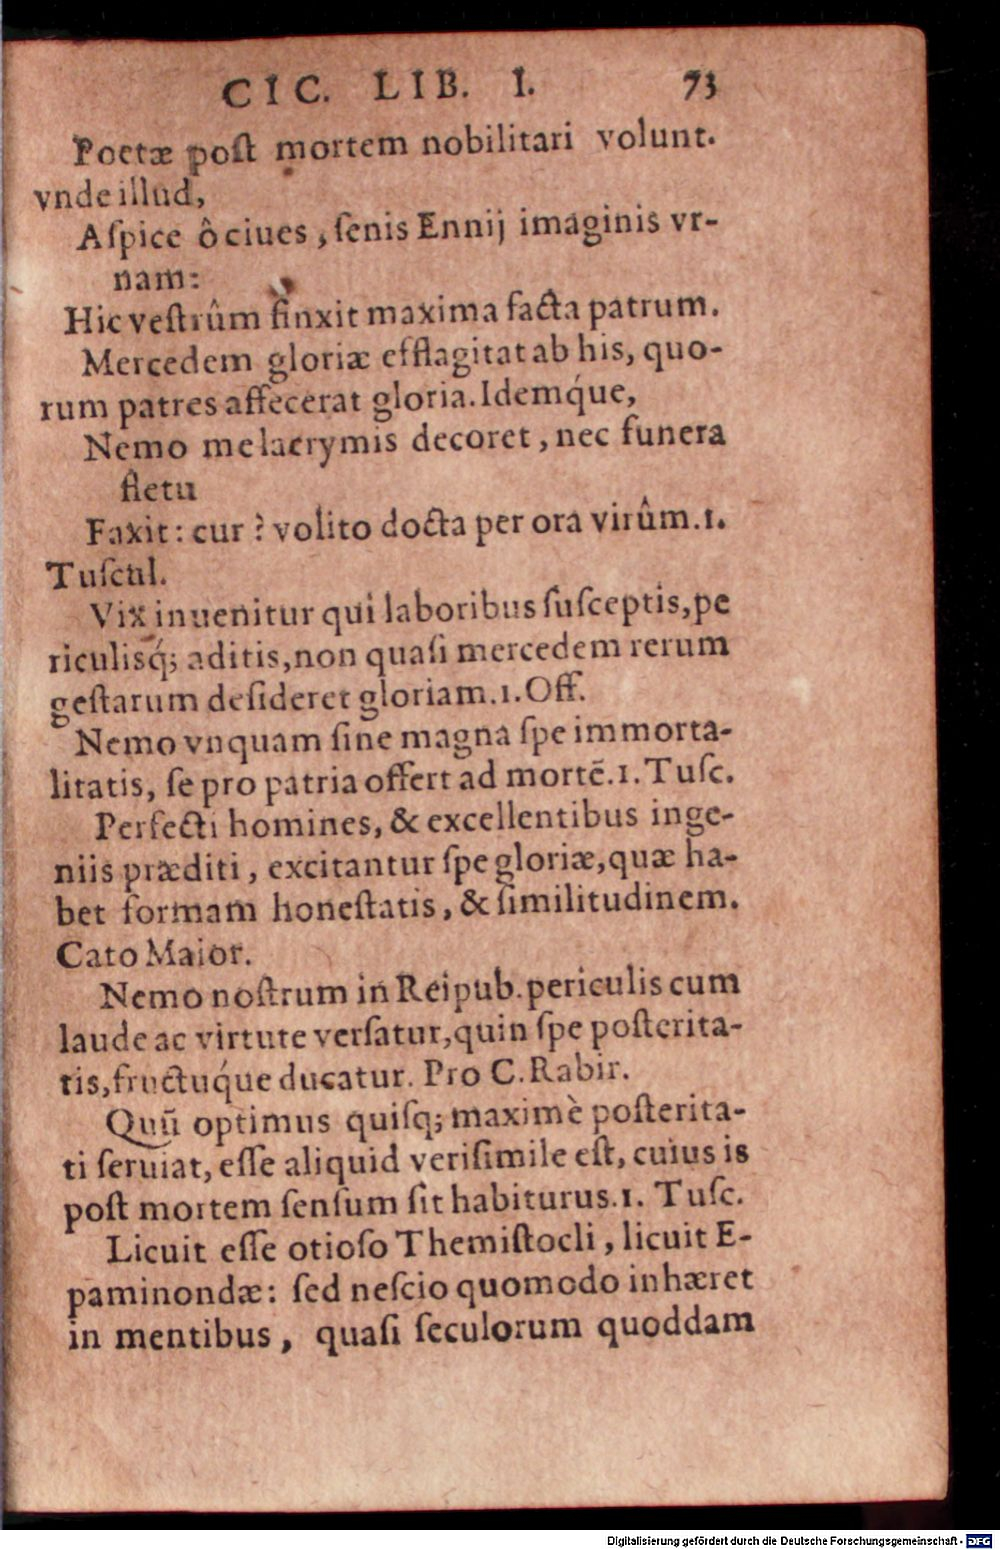 CIC. LIB. I. 73
Poetæ poſt mortem nobilitari volunt.
vnde illud,
Aſpice ô ciues, ſenis Ennij imaginis vr-
nam:
Hic veſtrûm finxit maxima facta patrum.
Mercedem gloriæ efflagitat ab his, quo-
rum patres affecerat gloria. Idemq́ue,
Nemo me lacrymis decoret, nec funera
fletu
Faxit: cur? volito docta per ora virûm. 1.
Tuſcul.
Vix inuenitur qui laboribus ſuſceptis, pe
riculisq́; aditis, non quaſi mercedem rerum
geſtarum deſideret gloriam. 1. Off.
Nemo vnquam ſine magna ſpe immorta-
litatis, ſe pro patria offert ad mortẽ. 1. Tuſc.
Perfecti homines, & excellentibus inge-
niis præditi, excitantur ſpe gloriæ, quæ ha-
bet formam honeſtatis, & ſimilitudinem.
Cato Maior.
Nemo noſtrum in Reipub. periculis cum
laude ac virtute verſatur, quin ſpe poſterita-
tis, fructuq́ue ducatur. Pro C. Rabir.
Quũ optimus quiſq; maximè poſterita-
ti ſeruiat, eſſe aliquid veriſimile eſt, cuius is
poſt mortem ſenſum ſit habiturus. 1. Tuſc.
Licuit eſſe otioſo Themiſtocli, licuit E-
paminondæ: ſed neſcio quomodo inhæret
in mentibus, quaſi ſeculorum quoddam
Digitalisierung gefördert durch die Deutsche Forschungsgemeinschaft - DFG